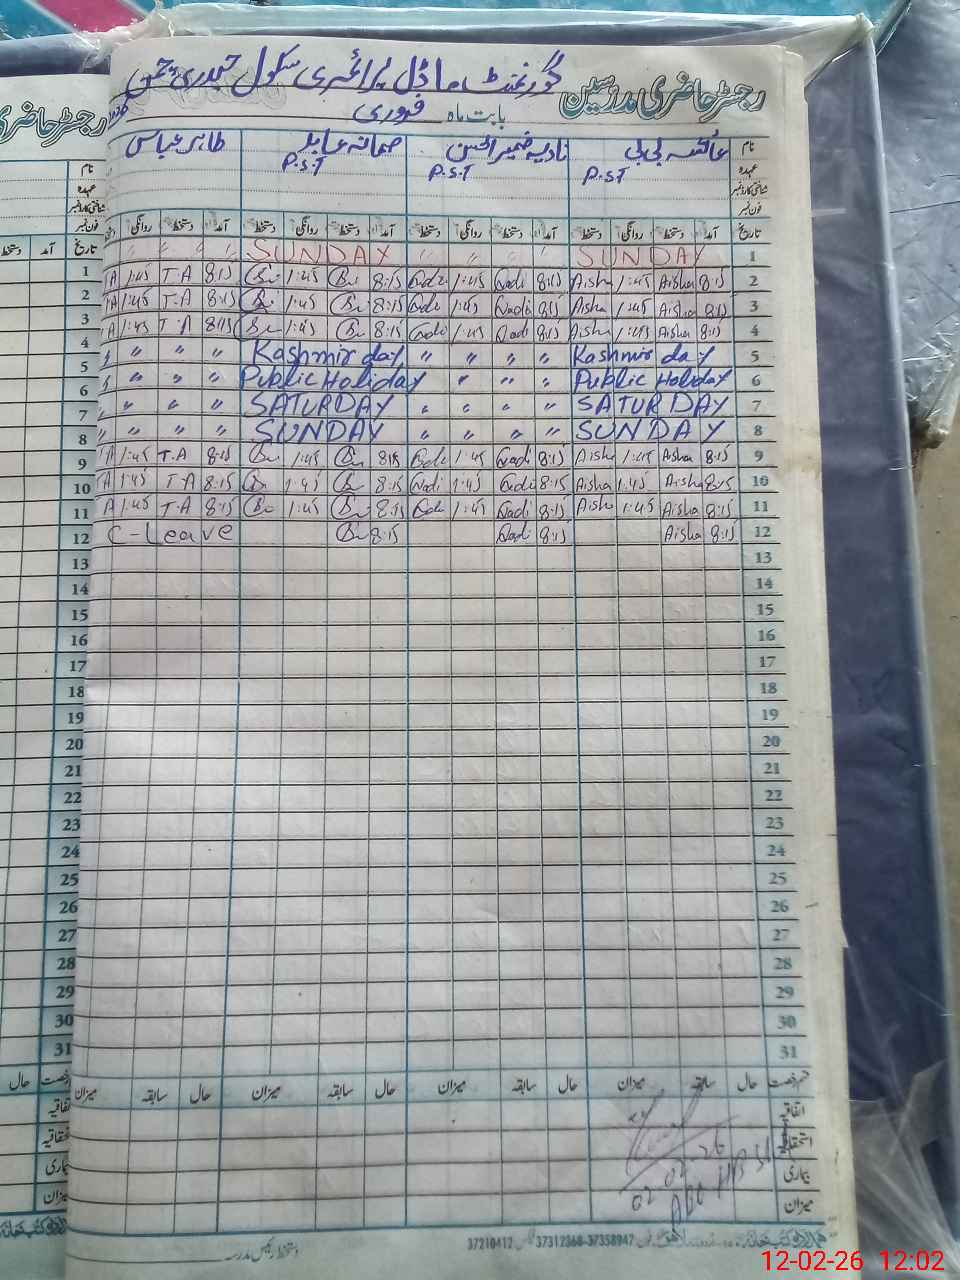 رجسٹر حاضری مدرسین گورنمنٹ ماڈل پرائمری سکول حیدری چمن
بابت ماہ فروری
نام عائشہ بی بی نادیہ ضمیر الحسن صمانہ عابد طاہر عباس
عہدہ P.S.T P.S.T P.S.T
شناختی کارڈ نمبر
فون نمبر
تاریخ آمد دستخط روانگی دستخط آمد دستخط روانگی دستخط آمد دستخط روانگی دستخط آمد دستخط روانگی دستخط
1 SUNDAY " " " " SUNDAY " " " "
2 8:15 Aisha 1:45 Aisha 8:15 Nadi 1:45 Nadi 8:15 1:45 8:15 T.A 1:45 T.A
3 8:15 Aisha 1:45 Aisha 8:15 Nadi 1:45 Nadi 8:15 1:45 8:15 T.A 1:45 T.A
4 8:15 Aisha 1:45 Aisha 8:15 Nadi 1:45 Nadi 8:15 1:45 8:15 T.A 1:45 T.A
5 Kashmir day " " " " Kashmir day " " " "
6 Public Holiday " " " Public Holiday " " " "
7 SATURDAY " " " " SATURDAY " " " "
8 SUNDAY " " " " SUNDAY " " " "
9 8:15 Aisha 1:45 Aisha 8:15 Nadi 1:45 Nadi 8:15 1:45 8:15 T.A 1:45 T.A
10 8:15 Aisha 1:45 Aisha 8:15 Nadi 1:45 Nadi 8:15 1:45 8:15 T.A 1:45 T.A
11 8:15 Aisha 1:45 Aisha 8:15 Nadi 1:45 Nadi 8:15 1:45 8:15 T.A 1:45 T.A
12 8:15 Aisha 8:15 Nadi 8:15 C-Leave
13
14
15
16
17
18
19
20
21
22
23
24
25
26
27
28
29
30
31
قسم رخصت حال سابقہ میزان حال سابقہ میزان حال سابقہ میزان حال سابقہ میزان
اتفاقیہ
استحقاقیہ
بیماری
میزان
02 02 26
37312368-37358947 37210412
دستخط رئیس مدرسہ
رجسٹر حاضری
نام
عہدہ
شناختی کارڈ نمبر
فون نمبر
تاریخ آمد دستخط
1
2
3
4
5
6
7
8
9
10
11
12
13
14
15
16
17
18
19
20
21
22
23
24
25
26
27
28
29
30
31
حال
میزان
12-02-26 12:02